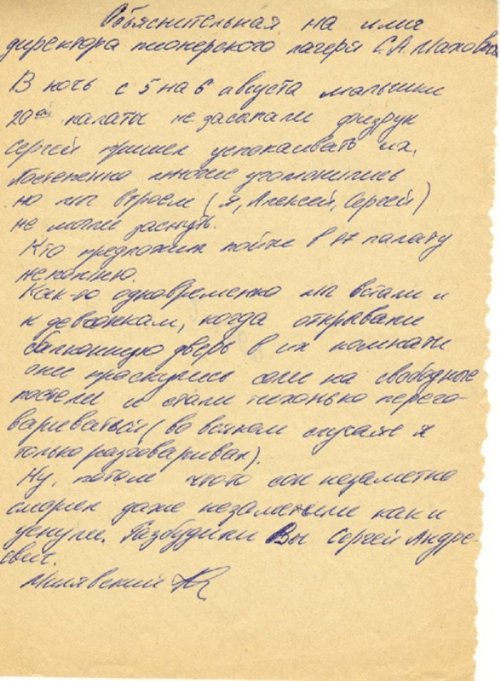 Объяснительная на имя
директора пионерского лагеря С.А. Шахова
В ночь с 5 на 6 августа мальчики
20ой палаты не засыпали физрук
Сергей пришел успокаивать их.
Постепенно многие угомонились
но мы втроем (я, Алексей, Сергей)
не могли заснуть.
Кто предложил пойти в 17 палату
не помню.
Как-то одновременно мы встали и
к девчонкам, когда открывали
балконную дверь в их комнати
они проснулись сели на свободные
постели и стали тихонько перего-
вариваться (во всяком случае я
только разговаривал).
Ну, потом что сон незаметно
сморил даже незаметили как и
уснули. Разбудили Вы Сергей Андре-
евич.